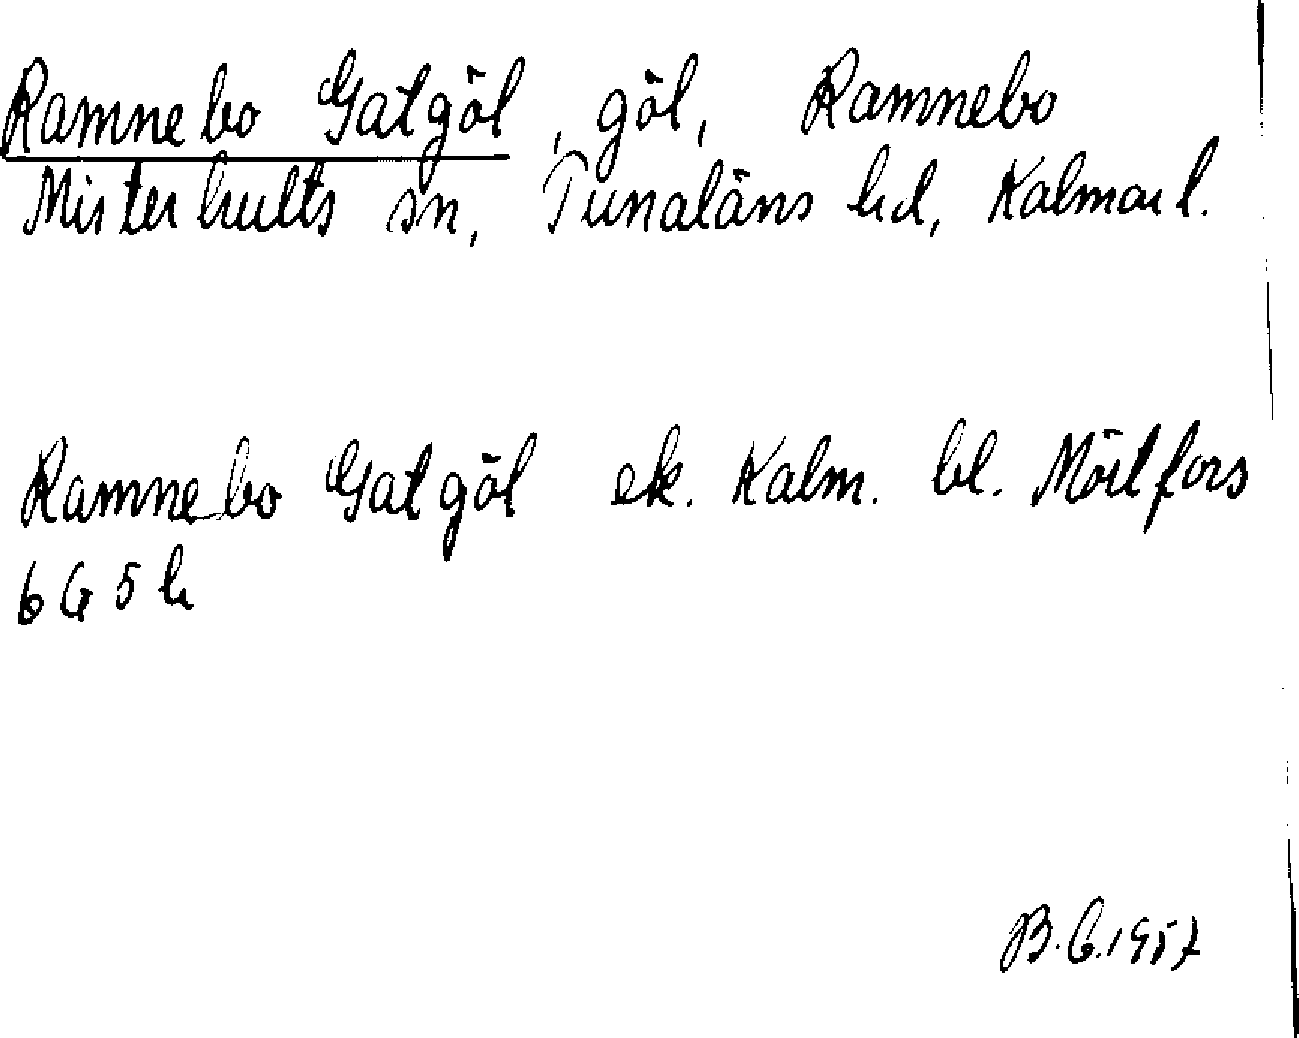 Ramnebo Gatgöl, göl, Ramnebo
Misterhults sn, Tunaläns hd, Kalmar l.
Ramnebo Gatgöl ek. Kalm. bl. Mörtfors
6 G 5 h
B.G. 1957